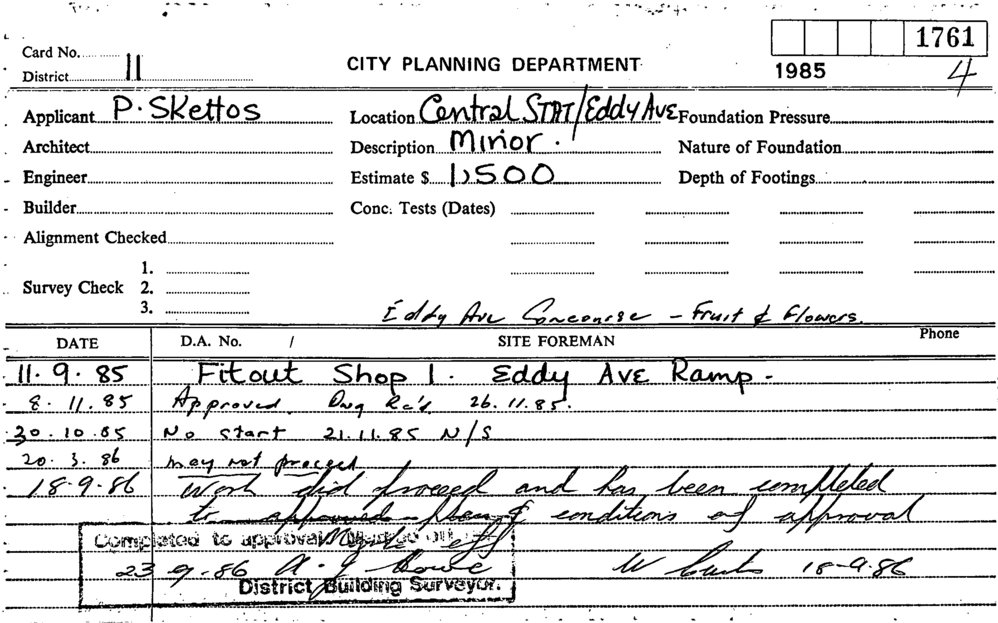 Card No.
1761
District 11
CITY PLANNING DEPARTMENT
1985
4
Applicant P. Skettos
Location Central STAT/Eddy Ave
Foundation Pressure
Architect
Description Minor.
Nature of Foundation
Engineer
Estimate $ 1,500
Depth of Footings
Builder
Conc. Tests (Dates)
Alignment Checked
1.
Survey Check 2.
3.
Eddy Ave Concourse - Fruit & Flowers.
DATE D.A. No. / SITE FOREMAN Phone
11.9.85 Fitout Shop 1. Eddy Ave Ramp.
8.11.85 Approved. Dwg Rc'd 26.11.85.
30.10.85 No start 21.11.85 N/S
20.3.86 may not proceed
18-9-86 Work did proceed and has been completed
to approved plan & conditions of approval
Completed to approval
23-9-86 A. J. W 18-9-86
District Building Surveyor.